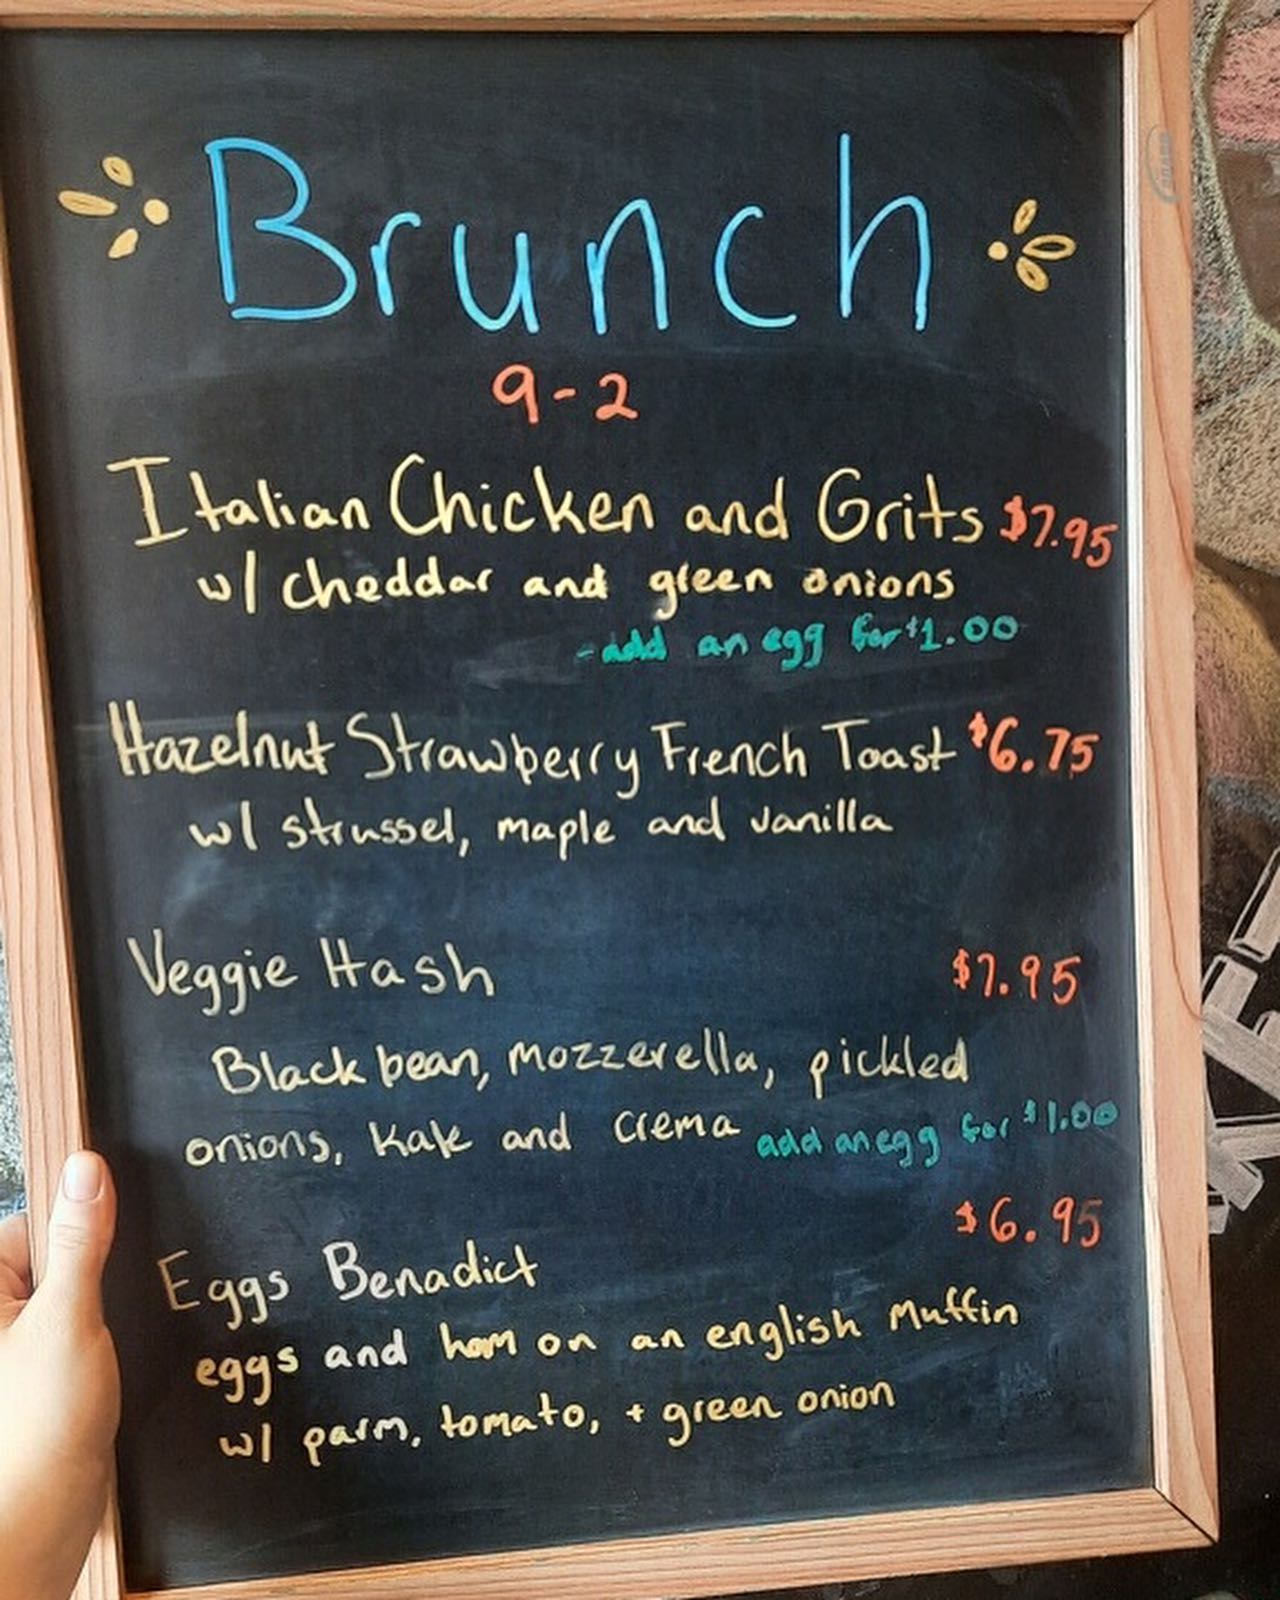 Brunch
9-2
Italian Chicken and Grits $7.95
w/ cheddar and green onions
-add an egg for $1.00
Hazelnut Strawberry French Toast $6.75
w/ strussel, maple and vanilla
Veggie Hash $7.95
Black bean, mozzerella, pickled
onions, kale and crema add an egg for $1.00
$6.95
Eggs Benadict
eggs and ham on an english muffin
w/ parm, tomato, + green onion